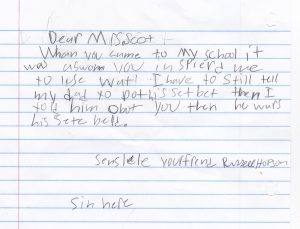 Dear Mrs. Scot
When you came to my school, it
was aswom you inspierd me
to luse wat! I have to still tell
my dad to pot his set bet then I
told him obot you then he wurs
his sete belt.
senslele your frend Russell Hopson
sin here